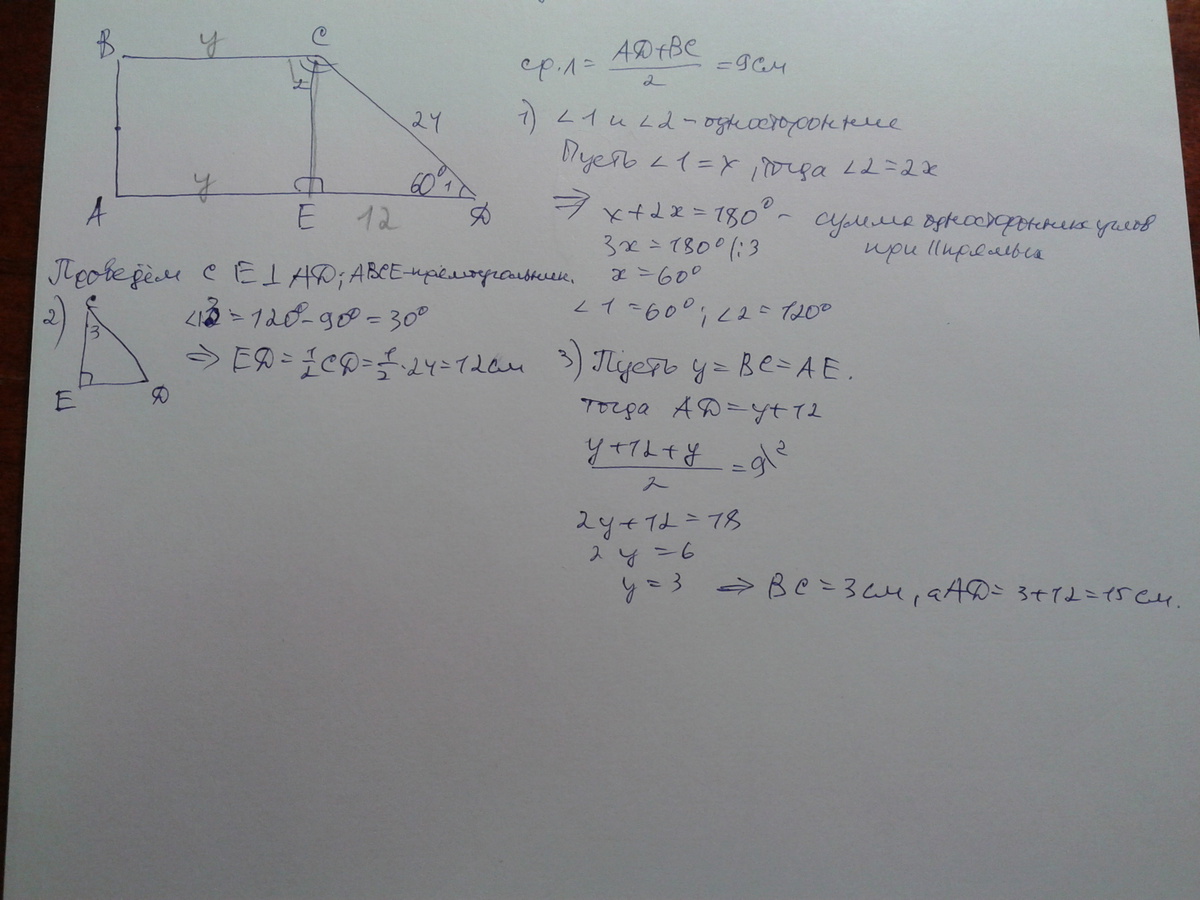 B y C
2
24
60° 1
y
A E 12 D
ср.л = AD+BC / 2 = 9см
1) ∠1 и ∠2 - односторонние
Пусть ∠1 = x, тогда ∠2 = 2x
⇒ x + 2x = 180° - сумма односторонних углов
3x = 180° |:3 при || прямых
x = 60°
∠1 = 60°; ∠2 = 120°
Проведём CE⊥AD; ABCE-прямоугольник.
2) C
3
E D
∠3 = 120° - 90° = 30°
⇒ ED = 1/2 CD = 1/2 · 24 = 12см
3) Пусть y = BC = AE.
тогда AD = y + 12
y + 12 + y / 2 = 9 \2
2y + 12 = 18
2y = 6
y = 3 ⇒ BC = 3см, а AD = 3+12 = 15см.